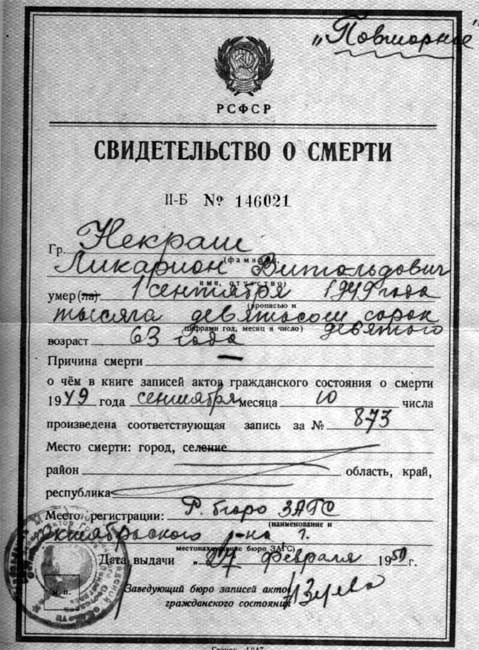 „Повторное"
РСФСР
СВИДЕТЕЛЬСТВО О СМЕРТИ
II-Б № 146021
Гр. Некраш
(фамилия,
Ликарион Витольдович
имя, отчество)
умер(ла) 1 сентября 1949 года
(прописью и
тысяча девятьсот сорок девятого
цифрами год, месяц и число)
возраст 63 года
Причина смерти —
о чём в книге записей актов гражданского состояния о смерти
1949 года сентября месяца 10 числа
произведена соответствующая запись за № 873
Место смерти: город, селение
район область, край,
республика
Место регистрации: Р. бюро ЗАГС
(наименование и
Октябрьского р-на г.
местонахождение бюро ЗАГС)
Дата выдачи февраля 1950 г.
М. п.
Заведующий бюро записей актов
гражданского состояния Зуева